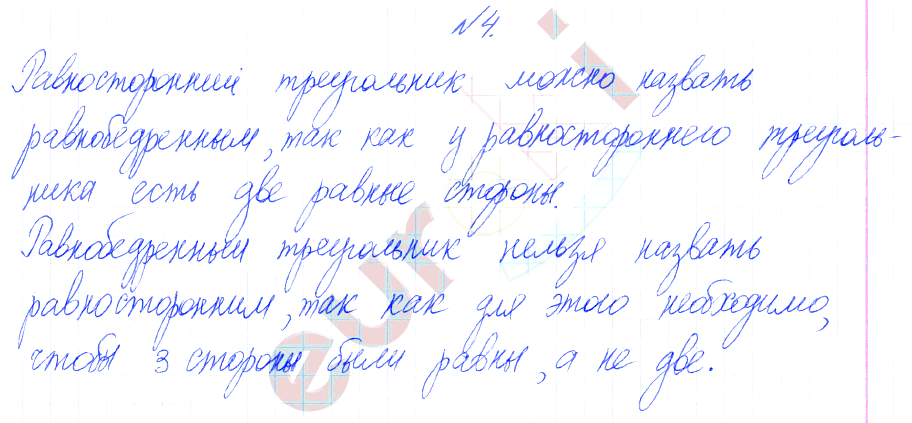 №4.
Равносторонний треугольник можно назвать
равнобедренным, так как у равностороннего треуголь-
ника есть две равные стороны.
Равнобедренный треугольник нельзя назвать
равносторонним, так как для этого необходимо,
чтобы 3 стороны были равны, а не две.